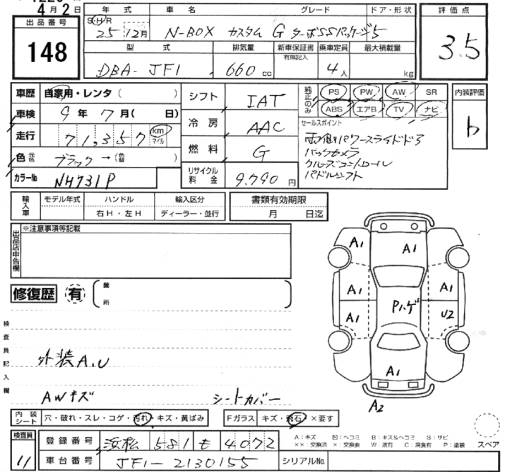 4月2日
出品番号 年式 車名 グレード ドア・形状 評価点
148 S・H/R 25年12月 N-BOX カスタム G ターボSSパッケージ 5 3.5
型式 排気量 新車保証書 有限記入 乗車定員 最大積載量
DBA-JF1 660cc 4人 kg
車歴 自家用・レンタ・( ) シフト IAT 純正のみ PS PW AW SR 内装評価
車検 9年7月( 日) ABS エアB TV ナビ b
走行 71,357 km マイル 冷房 AAC セールスポイント
色 ブラック→( ) 燃料 G 両側パワースライドドア
カラーNo NH731P リサイクル料金 9,790円 バックカメラ
クルーズコントロール
パドルシフト
輸入車 モデル年式 ハンドル 輸入区分 書類有効期限
右H・左H ディーラー・並行 月 日迄
出品店申告欄 ※注意事項等記載
修復歴 有 箇所
A1 A1
A1 A1
A1 Pハゲ U2
A1
A2
検査員記入欄
外装A,U
AWキズ シートカバー
内装シート 穴・破れ・スレ・コゲ・汚れ・キズ・黄ばみ Fガラス キズ・飛石・×要す
A:キズ U:ヘコミ B:キズ&ヘコミ S:サビ
スペア
検査員 登録番号 浜松 581 も 4072
11 車台番号 JF1-2130155 シリアルNo.